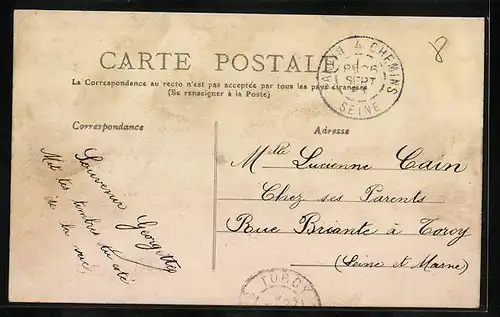 CARTE POSTALE
La Correspondance au recto n'est pas acceptée par tous les pays étrangers
(Se renseigner à la Poste)
PANTIN 4 CHEMINS
SEPT
SEINE
8
Correspondance
Adresse
Souvenir
Georgette
Met les timbres du côté
de la vue
Melle Lucienne Cain
Chez ses Parents
Rue Briante à Torcy
(Seine et Marne)
TORCY